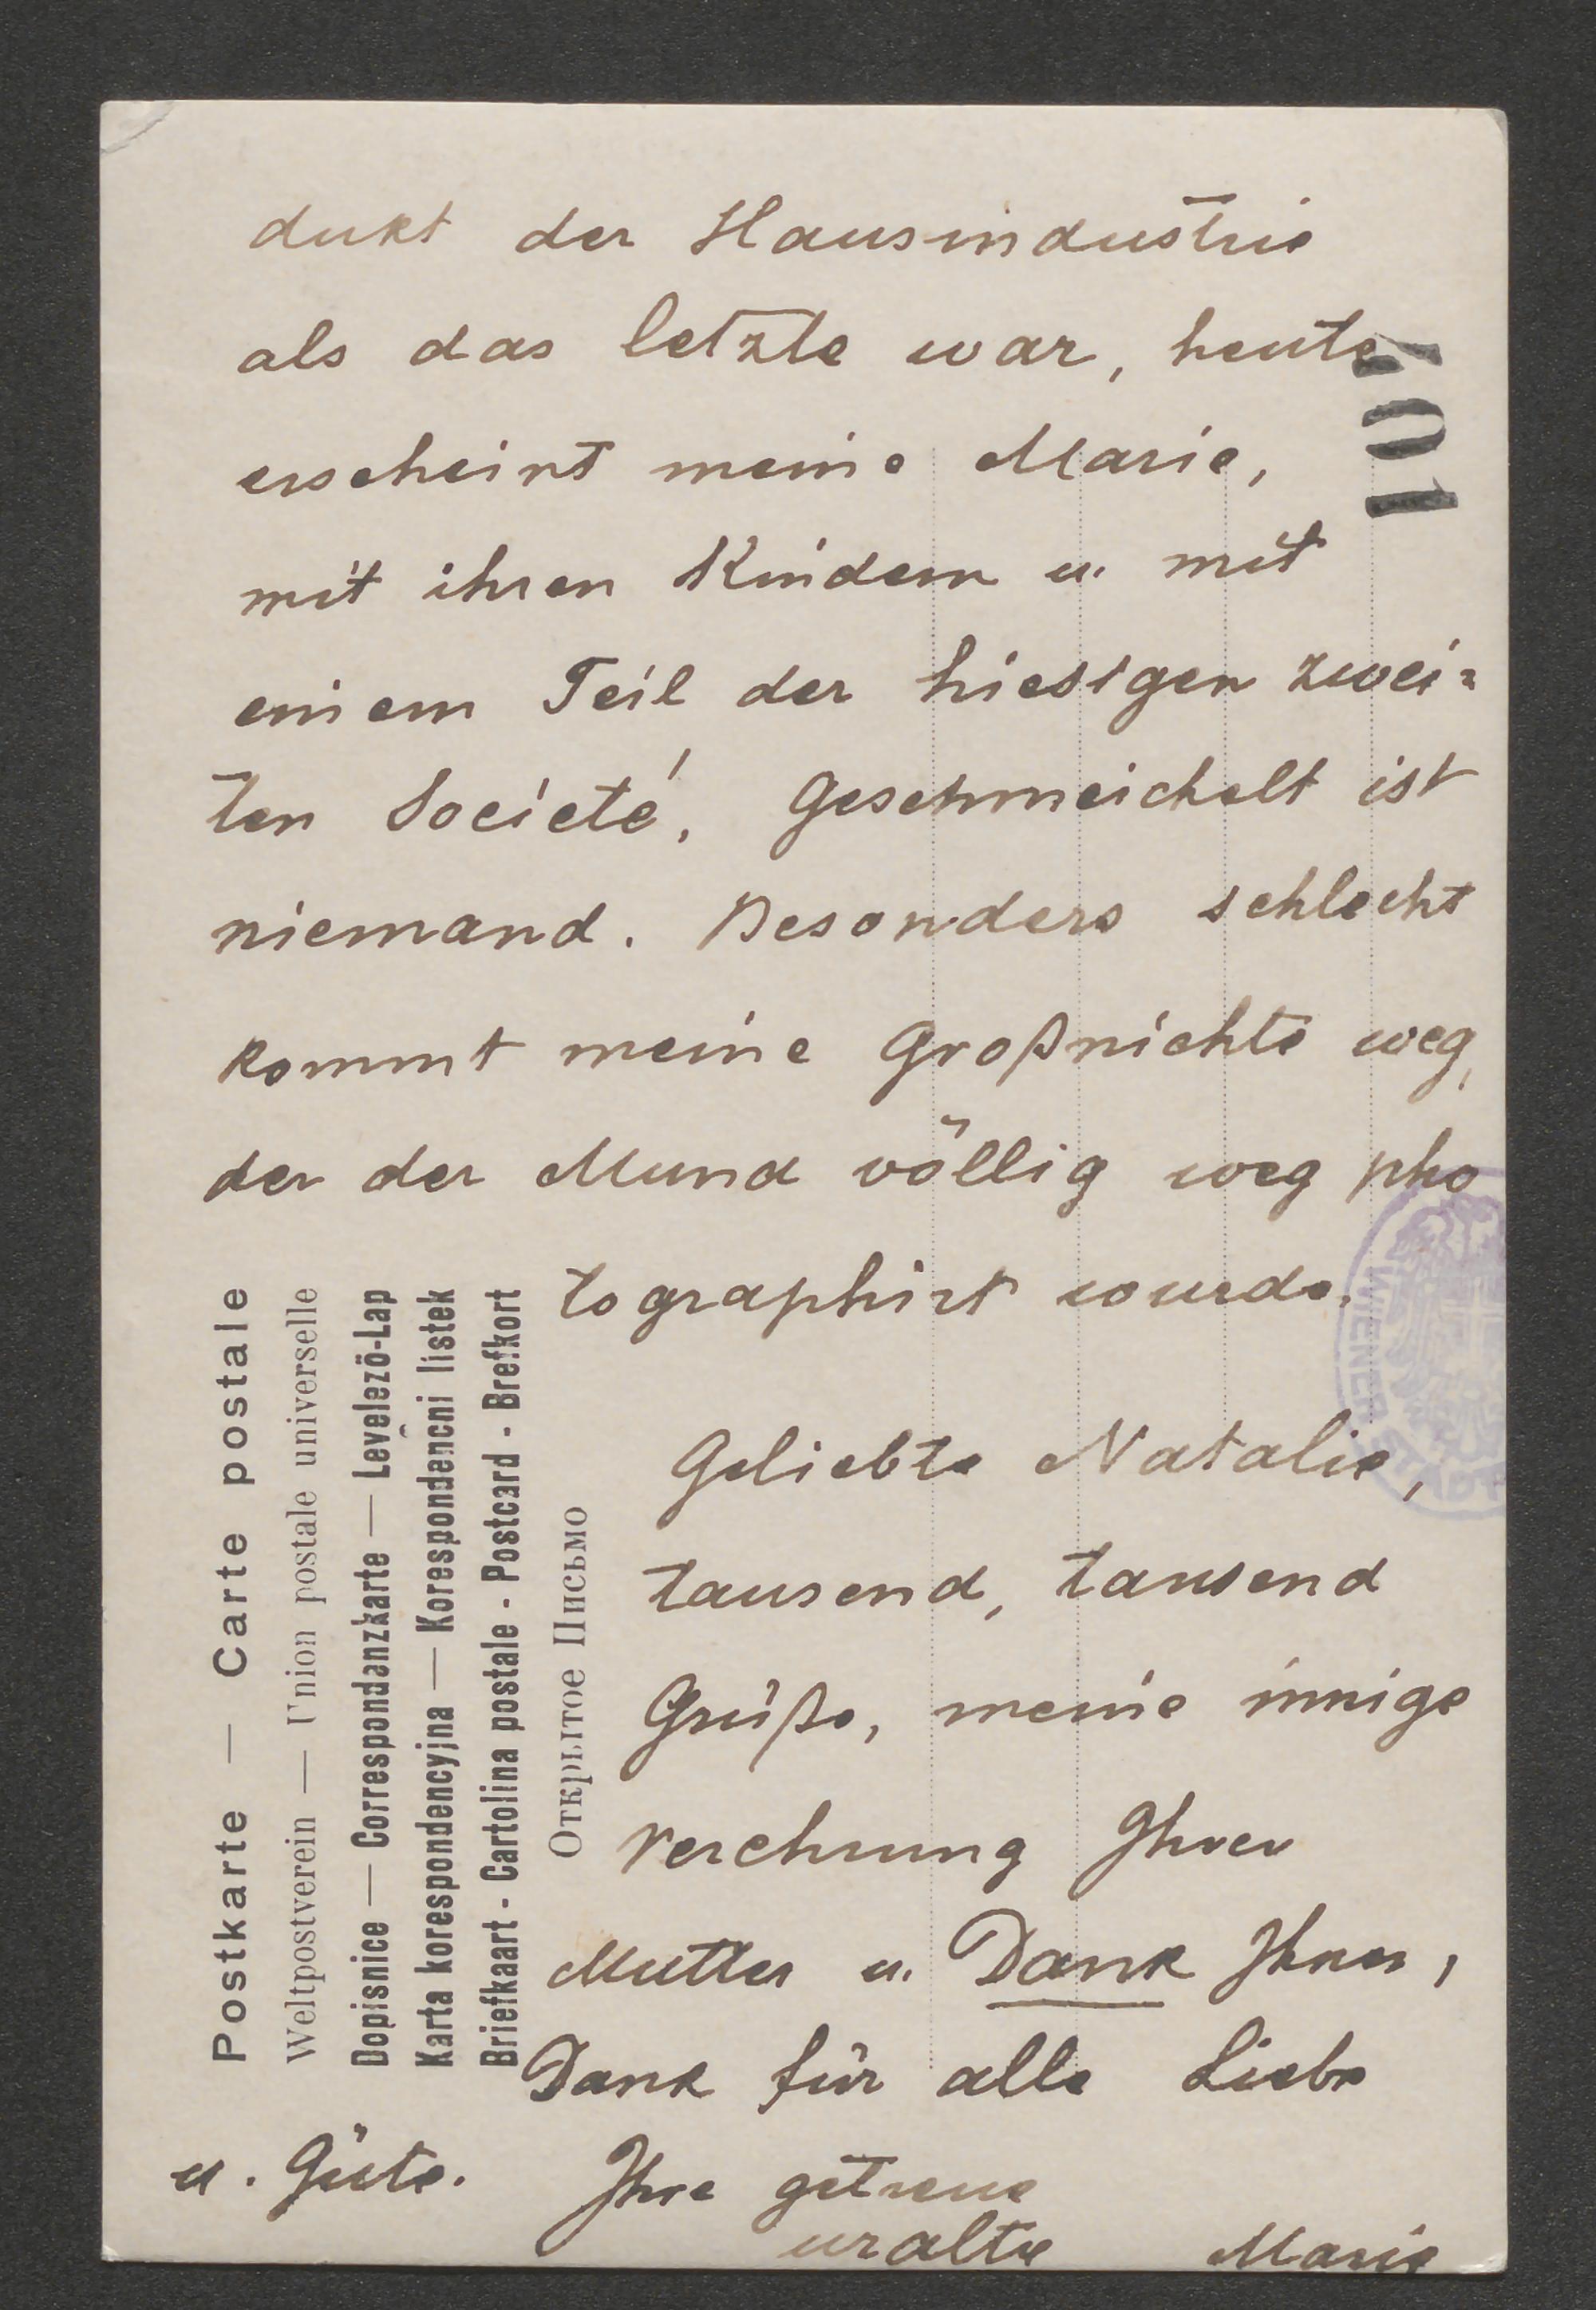 dukt der Hausindustrie
als das letzte war, heute
erscheint meine Marie,
mit ihren Kindern u. mit
einem Teil der hiesigen zwei=
ten Société. Geschmeichelt ist
niemand. Besonders schlecht
kommt meine Großnichte weg,
der der Mund völlig weg pho
tographirt wurde.
Geliebte Natalie,
tausend, tausend
Grüße, meine innige
Verehrung Ihrer
Mutter u. Dank Ihnen,
Dank für alle Liebe
u. Güte. Ihre getreue
uralte Marie
101
Postkarte — Carte postale
Weltpostverein — Union postale universelle
Dopisnice — Correspondanzkarte — Levelező-Lap
Karta korespondencyjna — Korespondenčni listek
Briefkaart - Cartolina postale - Postcard - Brefkort
Открытое Письмо
WIENER STADT